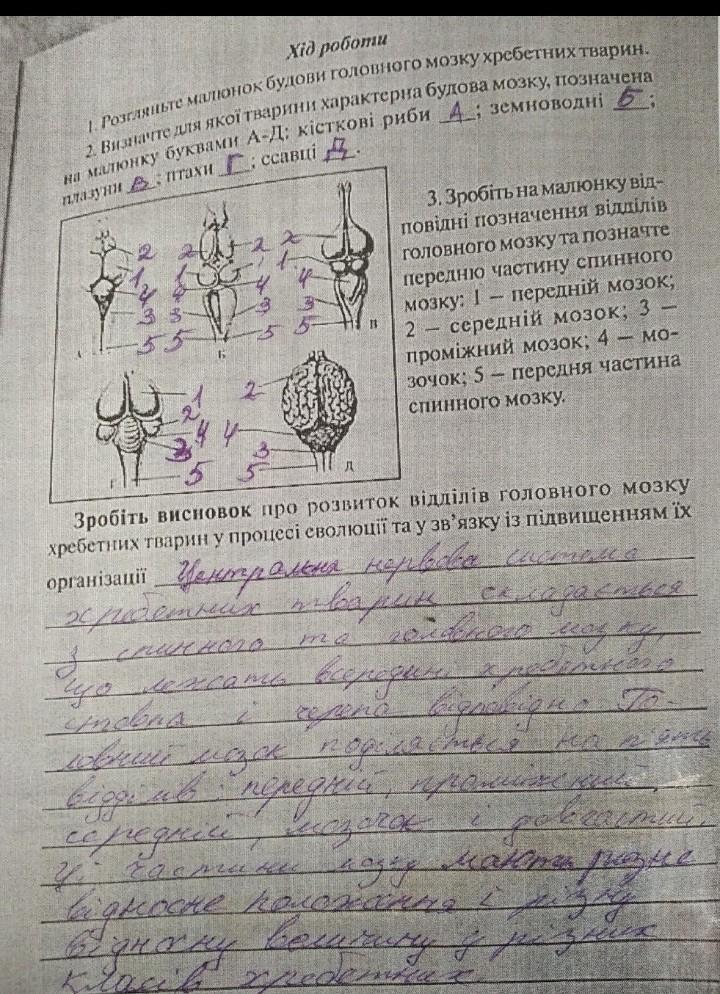 Хід роботи
1. Розгляньте малюнок будови головного мозку хребетних тварин.
2. Визначте для якої тварини характерна будова мозку, позначена
на малюнку буквами А-Д: кісткові риби А ; земноводні Б ;
плазуни В ; птахи Г ; ссавці Д .
3. Зробіть на малюнку від-
повідні позначення відділів
головного мозку та позначте
передню частину спинного
мозку: 1 — передній мозок;
2 — середній мозок; 3 —
проміжний мозок; 4 — мо-
зочок; 5 — передня частина
спинного мозку.
2 2 2 2
1 1 1 1
4 4 4 4
3 3 3 3
5 5 5 5
А Б В
1 2
2
4 4
3 3
5 5
Г Д
Зробіть висновок про розвиток відділів головного мозку
хребетних тварин у процесі еволюції та у зв’язку із підвищенням їх
організації Центральна нервова система
хребетних тварин складається
з спинного та головного мозку,
що лежать всередині хребетного
стовпа і черепа відповідно Го-
ловний мозок поділяється на п'ять
відділів: передній, проміжний,
середній, мозочок і довгастий.
Ці частини мозку мають різне
відносне положення і різну
відносну величину у різних
класів хребетних.